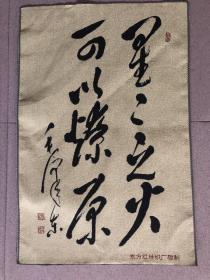 星〻之火
可以燎原
毛泽东
东方红丝织厂敬制